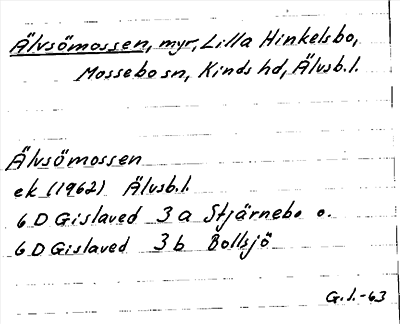 Älvsömossen, myr, Lilla Hinkelsbo,
Mossebo sn, Kinds hd, Älvsb.l.
Älvsömossen
ek (1962) Älvsb.l.
6 D Gislaved 3 a Stjärnebo o.
6 D Gislaved 3 b Bollsjö
G.J.-63